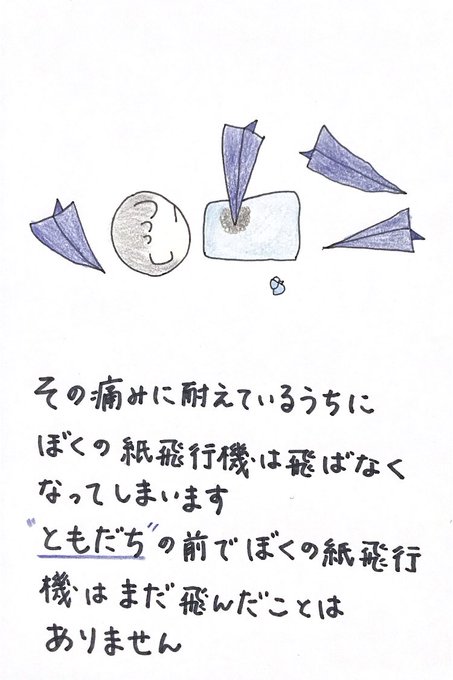 その痛みに耐えているうちに
ぼくの紙飛行機は飛ばなく
なってしまいます
"ともだち"の前でぼくの紙飛行
機はまだ飛んだことは
ありません